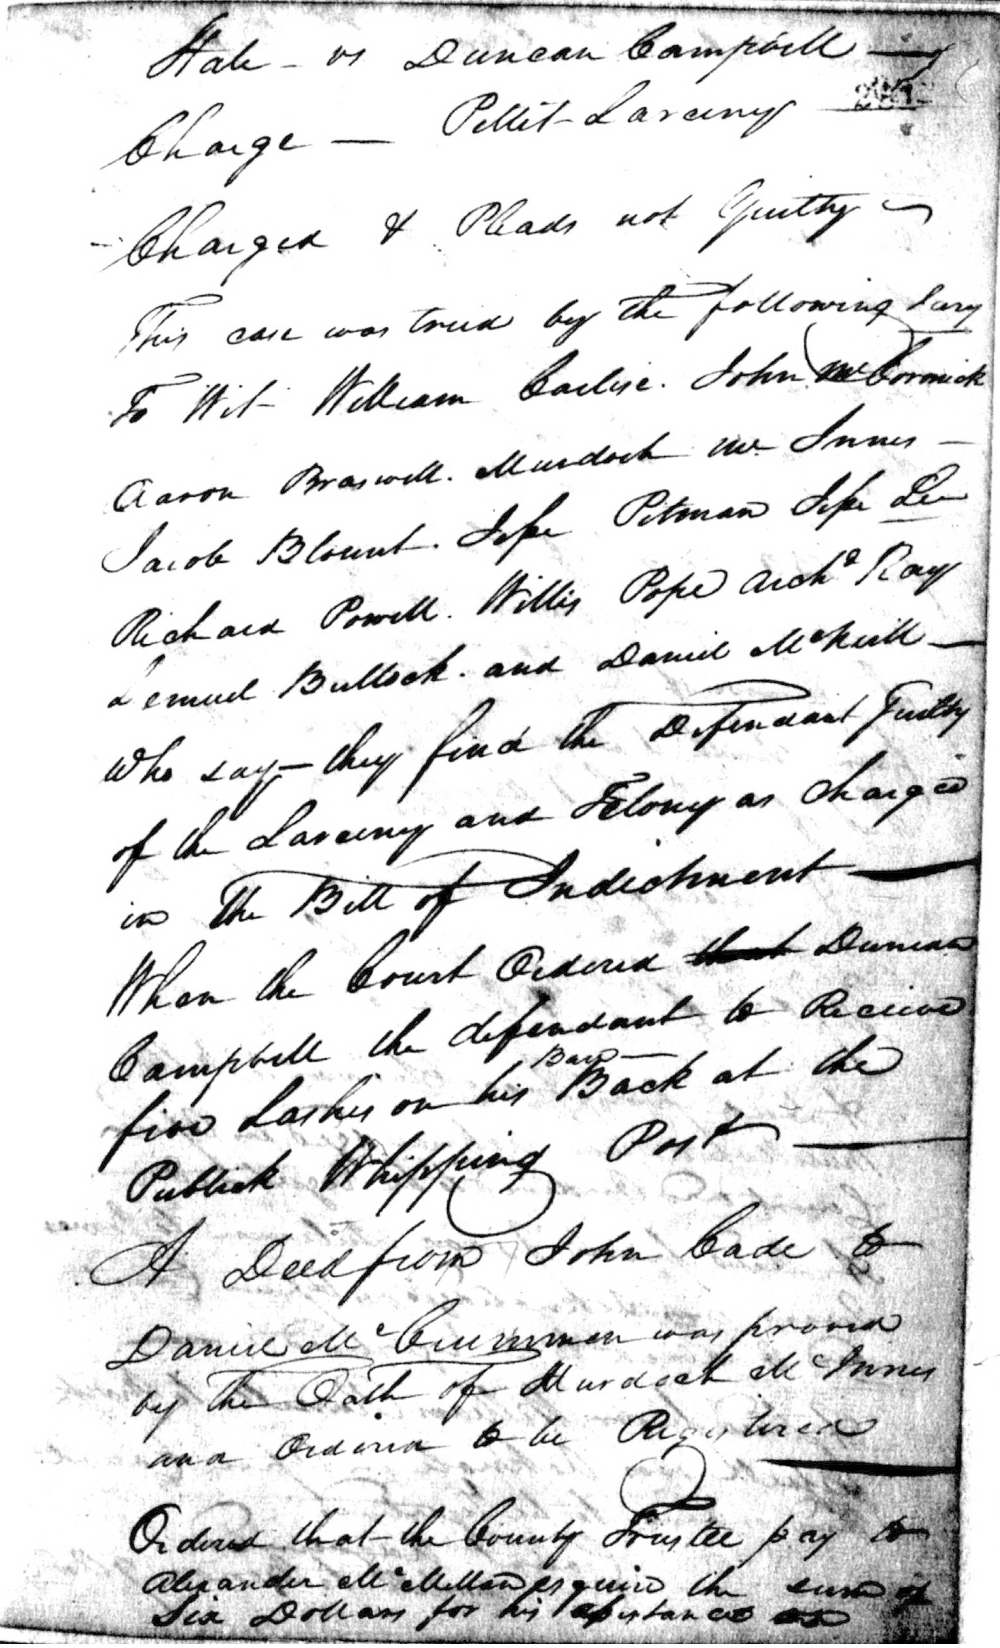 State - vs Duncan Campbell —
Charge — Pettit - Larceny
Charged & Pleads not Guilty
This case was tried by the following Jury
To Wit William Carlise. John McCormick
Aaron Braswell. Murdock McInnis —
Jacob Blount. Jesse Pitman Jesse Lee
Richard Powell. Willis Pope Archd Ray
Lemuel Bullock. and Daniel McNeill —
Who say — they find the Defendant Guilty
of the Larceny and Felony as Charged
in the Bill of Indictment —
When the Court Ordered that Duncan
Campbell the defendant to Receive
five Lashes on his Bare Back at the
Publick Whipping Post —
A Deed from John Cade to
Daniel McCrummen was proved
by the Oath of Murdock McInnis
and Ordered to be Registered —
Ordered that the County Trustee pay to
Alexander McMillan esquire the sum of
Six Dollars for his assistance